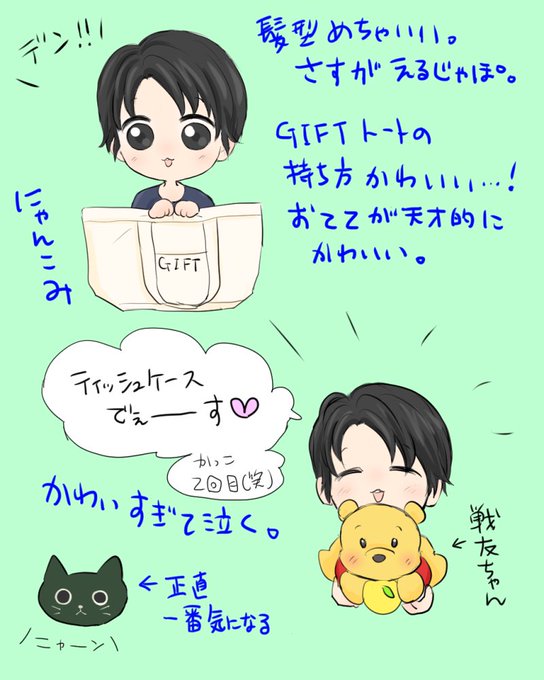 デン!!!
髪型めちゃいい。
さすがえるじゃぽ。
GIFTトートの
持ち方かわいいい…!
おててが天才的に
かわいい。
にゃんこみ
GIFT
ティッシュケース
でぇーーす
かっこ
2回目(笑)
かわいすぎて泣く。
戦友ちゃん
←正直
一番気になる
ニャーン